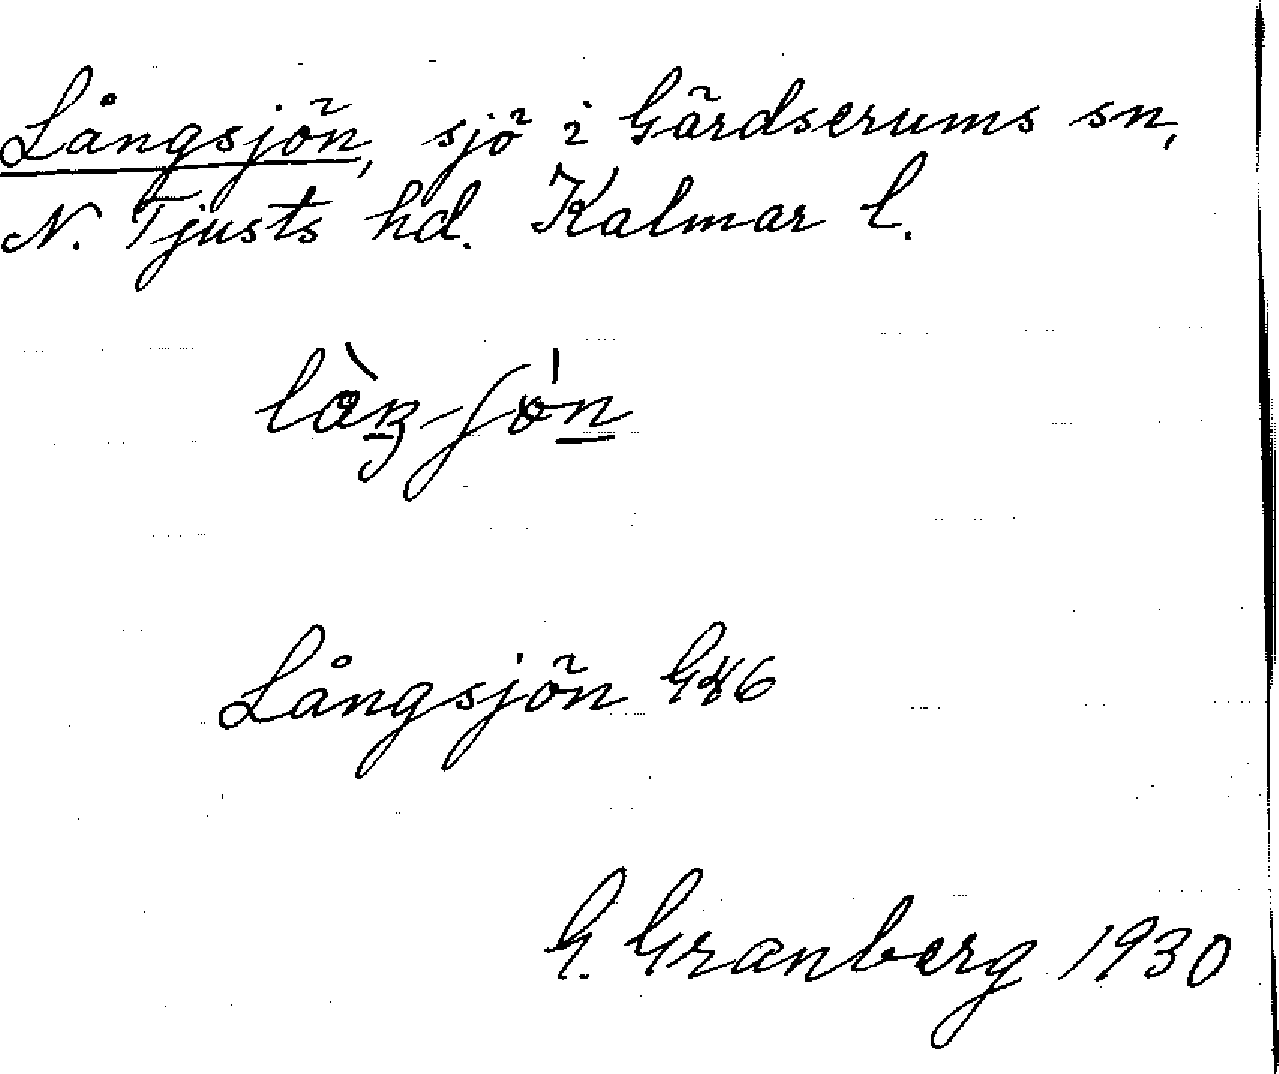 Långsjön, sjö i Gärdserums sn,
N. Tjusts hd. Kalmar l.
Långsjön
G. Granberg 1930